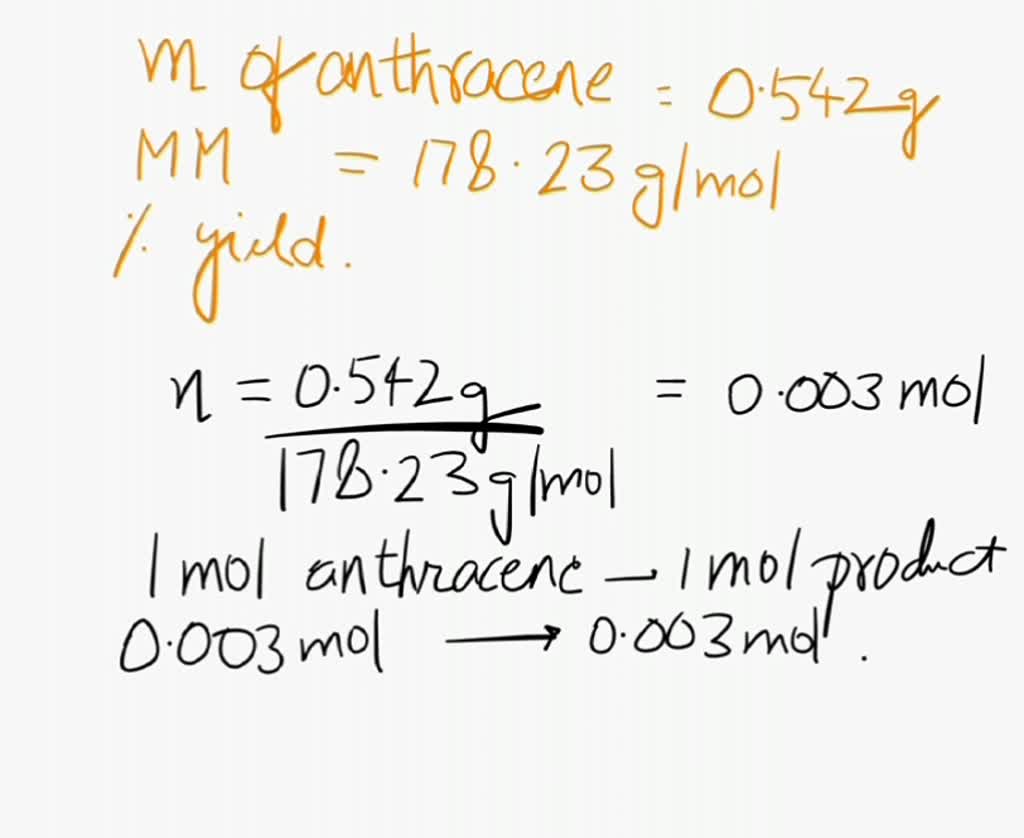 m of anthracene = 0.542g
MM = 178.23 g/mol
% yield.
n = 0.542g = 0.003 mol
178.23 g/mol
1 mol anthracene → 1 mol product
0.003 mol → 0.003 mol.